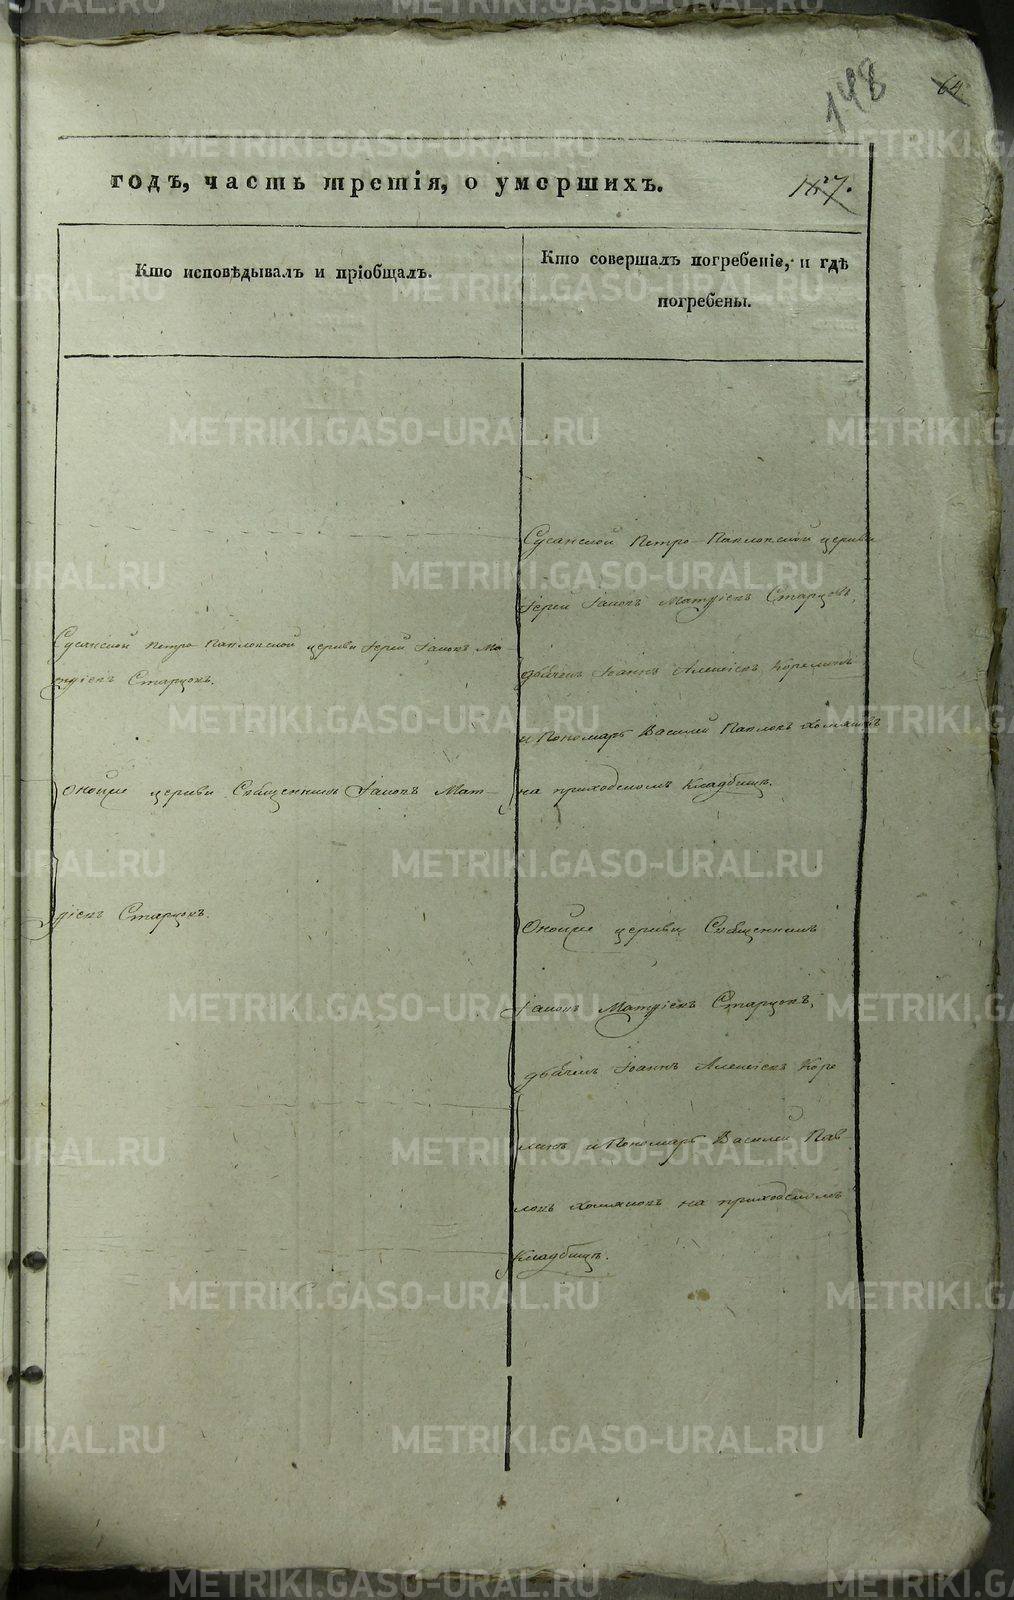 148
64
годъ, часть третія, о умершихъ.
127.
Кто исповѣдывалъ и пріобщалъ.
Кто совершалъ погребеніе, и гдѣ
погребены.
Сусанской Петро-Павловской церкви Іерей Іаковъ Ма-
тфіевъ Старцовъ.
Оноиже церкви Священникъ Іаковъ Мат-
фіевъ Старцовъ.
Сусанской Петро-Павловской церкви
Іерей Іаковъ Матфіевъ Старцовъ,
дьячекъ Іоаннъ Алексіевъ Корелинъ
и Пономарь Василей Павловъ Хомяковъ
на приходскомъ Кладбищѣ.
Оноиже церкви Священникъ
Іаковъ Матфіевъ Старцовъ,
дьячекъ Іоаннъ Алексіевъ Коре
линъ и Пономарь Василей Пав
ловъ Хомяковъ на приходскомъ
Кладбищѣ.
METRIKI.GASO-URAL.RU